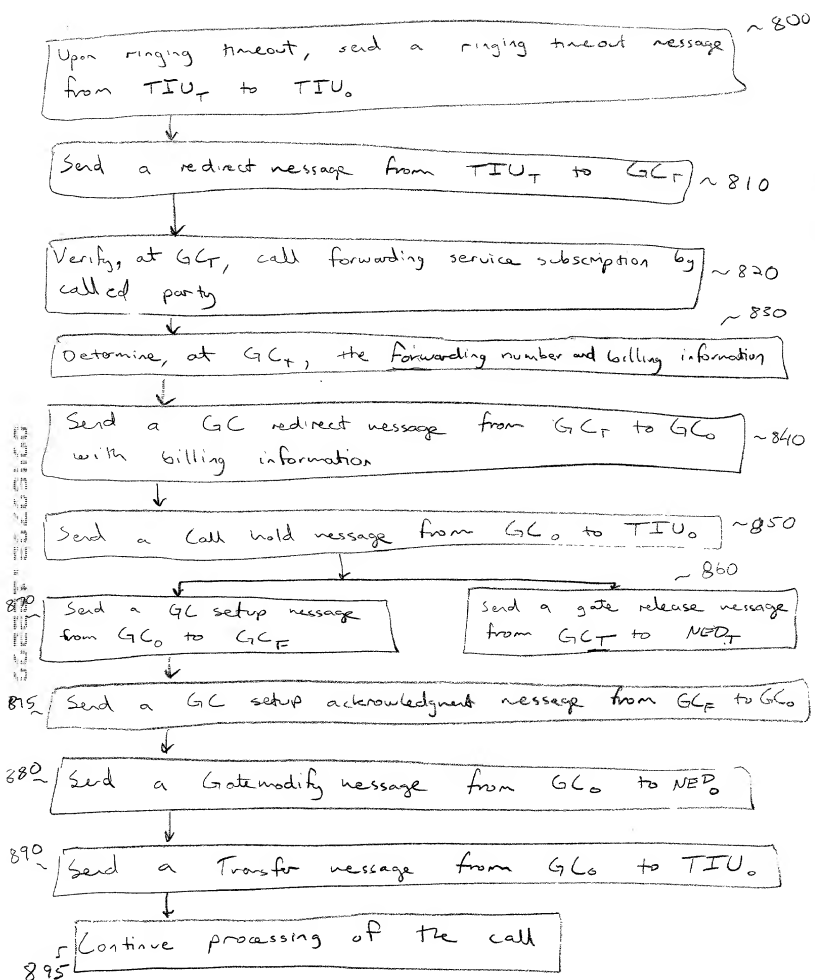 ~800
Upon ringing timeout, send a ringing timeout message
from TIU_T to TIU_O
Send a redirect message from TIU_T to GC_T
~810
Verify, at GC_T, call forwarding service subscription by
called party
~820
~830
Determine, at GC_T, the forwarding number and billing information
Send a GC redirect message from GC_T to GC_O
with billing information
~840
Send a Call hold message from GC_O to TIU_O
~850
~860
870
Send a GC setup message
from GC_O to GC_F
Send a gate release message
from GC_T to NED_T
875
Send a GC setup acknowledgment message from GC_F to GC_O
880
Send a Gatemodify message from GC_O to NED_O
890
Send a Transfer message from GC_O to TIU_O
Continue processing of the call
895